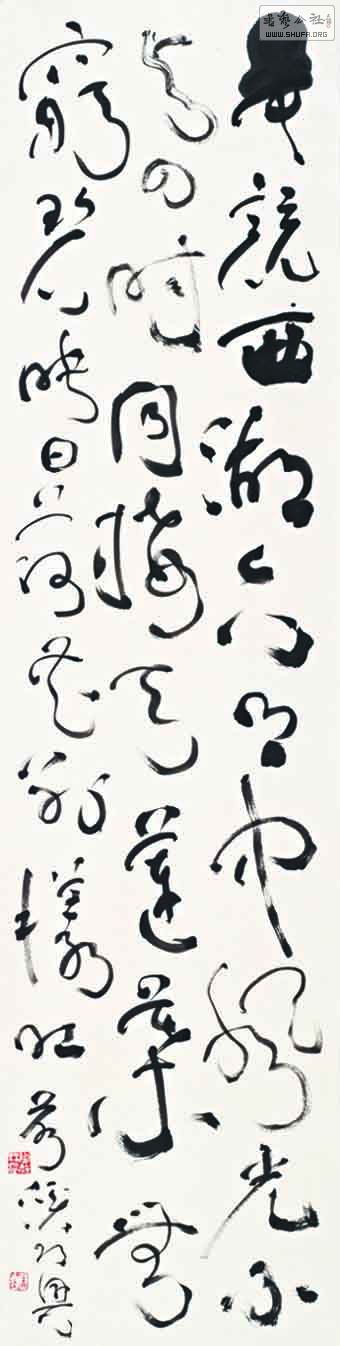 書藝公社
WWW.SHUFA.ORG
畢竟西湖六月中風光不
與四時同接天蓮葉無
窮碧映日荷花別樣紅